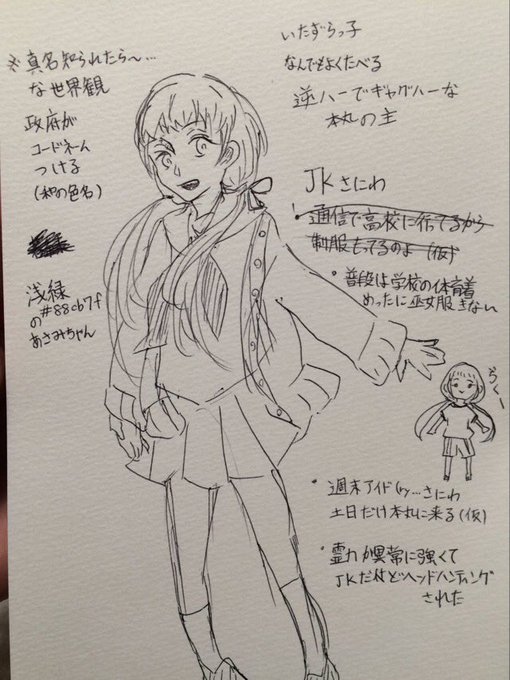 ※真名知られたら〜…
な世界観
政府が
コードネーム
つける
(和の色名)
浅緑
の#88cb7f
あさみちゃん
いたずらっ子
なんでもよくたべる
逆ハーでギャグハーな
本丸の主
JKさにわ
・通信で高校に行ってるから
制服もってるのよ(仮)
・普段は学校の体育着
めったに巫女服きない
らくー
・週末アイド(ry…さにわ
土日だけ本丸に来る(仮)
・霊力が異常に強くて
JKだけどヘッドハンティング
された